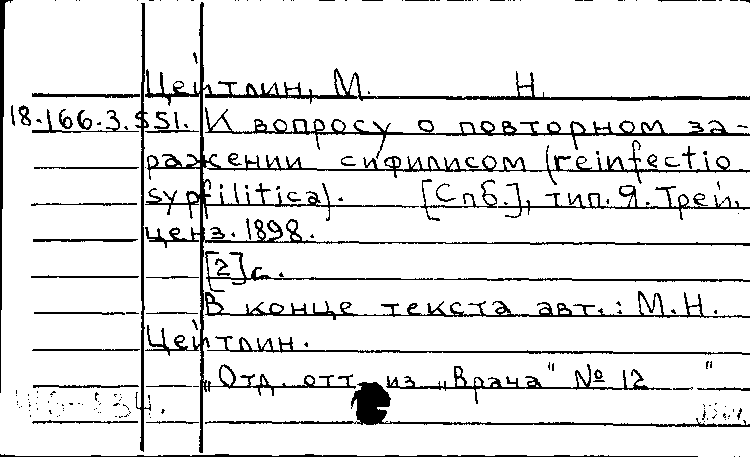 Цейтлин, М. Н.
18.166.3.551. К вопросу о повторном за-
ражении сифилисом (reinfectio
sypfilitica). [Спб.], тип. Я. Трей.
ценз. 1898.
[2]с.
В конце текста авт.: М.Н.
Цейтлин.
„Отд. отт. из „Врача" № 12 "